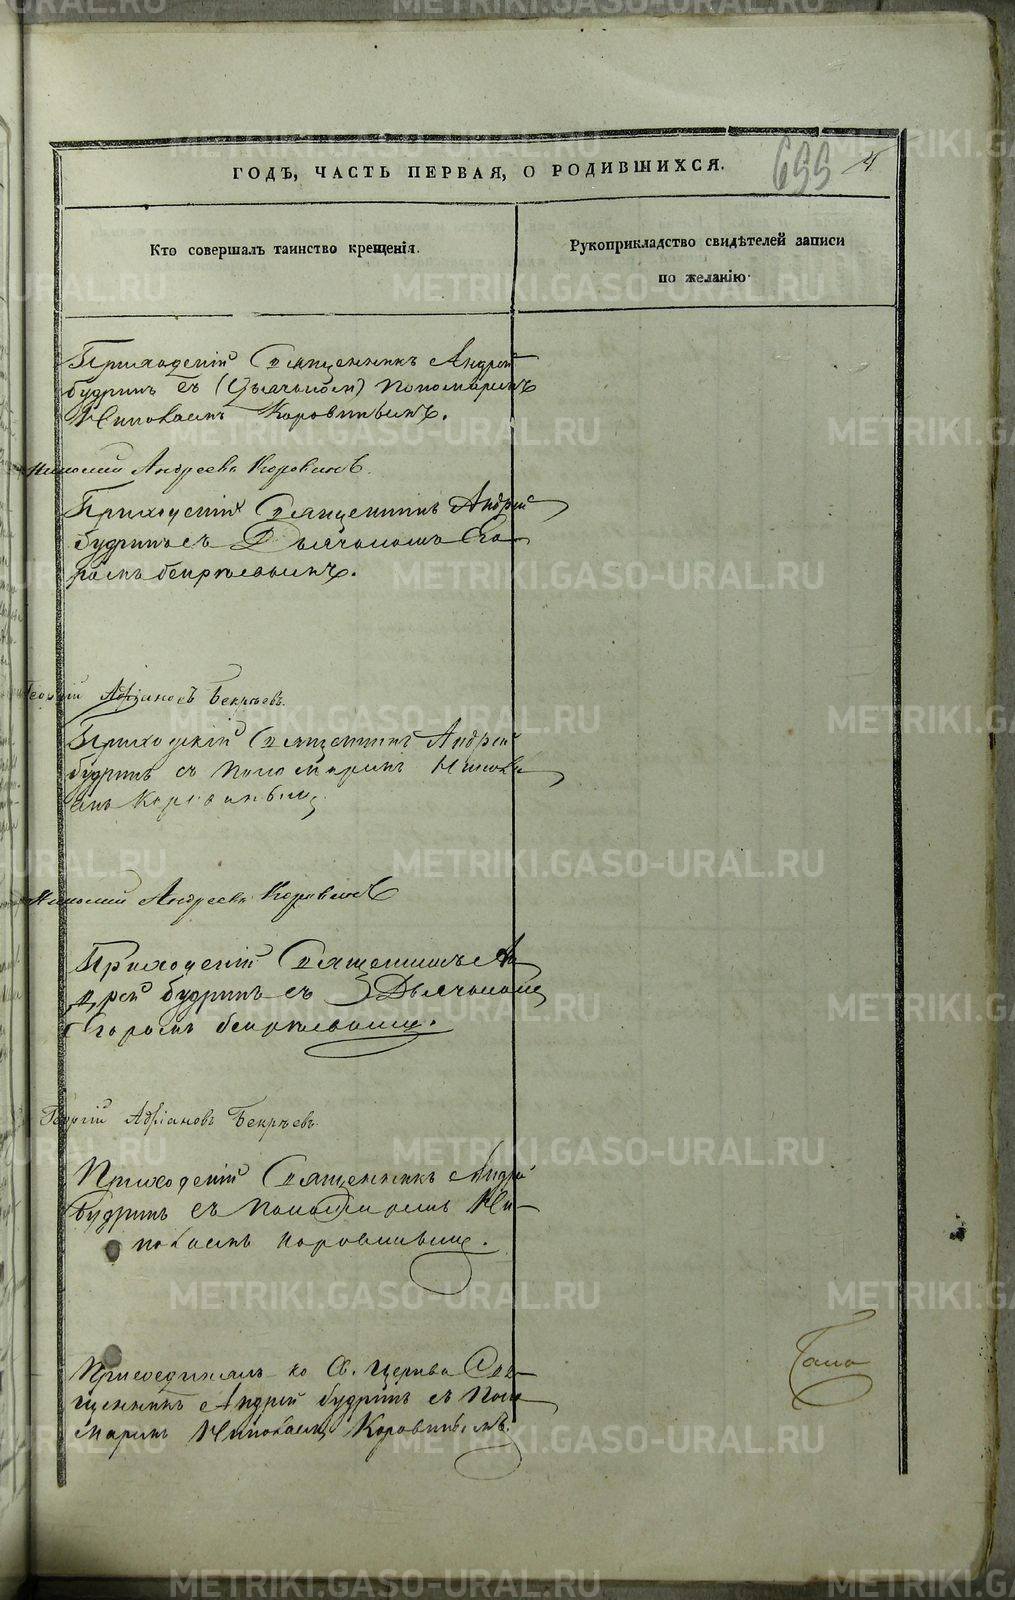 ГОДЪ, ЧАСТЬ ПЕРВАЯ, О РОДИВШИХСЯ.
699 4
Кто совершалъ таинство крещенія.
Рукоприкладство свидѣтелей записи
по желанію
Приходскій Священникъ Андрей
Будринъ съ (Дьячкомъ) Пономаремъ
Николаемъ Коровинымъ.
Николай Андреевъ Коровинъ.
Приходскій Священникъ Андрей
Будринъ съ Дьячкомъ Его-
ромъ Бекряевымъ.
Георгій Адріановъ Бекряевъ.
Приходскій Священникъ Андрей
Будринъ съ Пономаремъ Никола-
емъ Коровинымъ
Николай Андреевъ Коровинъ
Приходскій Священникъ Ан-
дрей Будринъ съ Дьячкомъ
Егоромъ Бекряевымъ.
Георгій Адріановъ Бекряевъ.
Приходскій Священникъ Андрей
Будринъ съ Пономаремъ Ни-
колаемъ Коровинымъ.
Присоединялъ ко Св. Церкви Свя-
щенникъ Андрей Будринъ съ Поно-
маремъ Николаемъ Коровинымъ.
METRIKI.GASO-URAL.RU